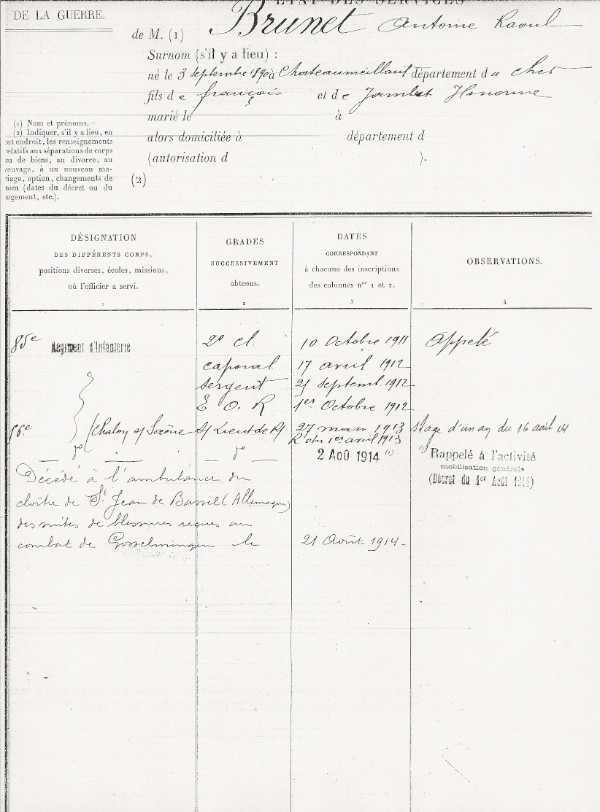 DE LA GUERRE.
ÉTAT DES SERVICES
de M. (1) Brunet Antoine Raoul
Surnom (s'il y a lieu) :
né le 3 septembre 1890 à Chateaumeillant département du Cher
fils de françois et de Jambut Honorine
marié le à
alors domiciliée à département d
(autorisation d ).
(2)
(1) Nom et prénoms. —
(2) Indiquer, s'il y a lieu, en
cet endroit, les renseignements
relatifs aux séparations de corps
ou de biens, au divorce, au
veuvage, à un nouveau ma-
riage, option, changements de
nom (dates du décret ou du
jugement, etc.).
DÉSIGNATION
DES DIFFÉRENTS CORPS,
positions diverses, écoles, missions,
où l'officier a servi.
1
GRADES
SUCCESSIVEMENT
obtenus.
2
DATES
CORRESPONDANT
à chacune des inscriptions
des colonnes nos 1 et 2.
3
OBSERVATIONS.
4
85e Régiment d'Infanterie 2e cl. 10 Octobre 1911 Appelé
caporal 17 avril 1912
sergent 25 septemb. 1912
E O R 1er Octobre 1912
Chalon s/ Saône s/ Lieut de Rl 27 mars 1913 Stage d'un an du 16 avril 14
R. du 1er avril 1913
do do 2 AOÛ 1914 Rappelé à l'activité
mobilisation générale
(Décret du 1er Août 1914)
Décédé à l'ambulance du
cloître de St Jean de Bassel (Allemagne)
des suites de blessures reçues au
combat de Gosselmingen le 21 Août 1914